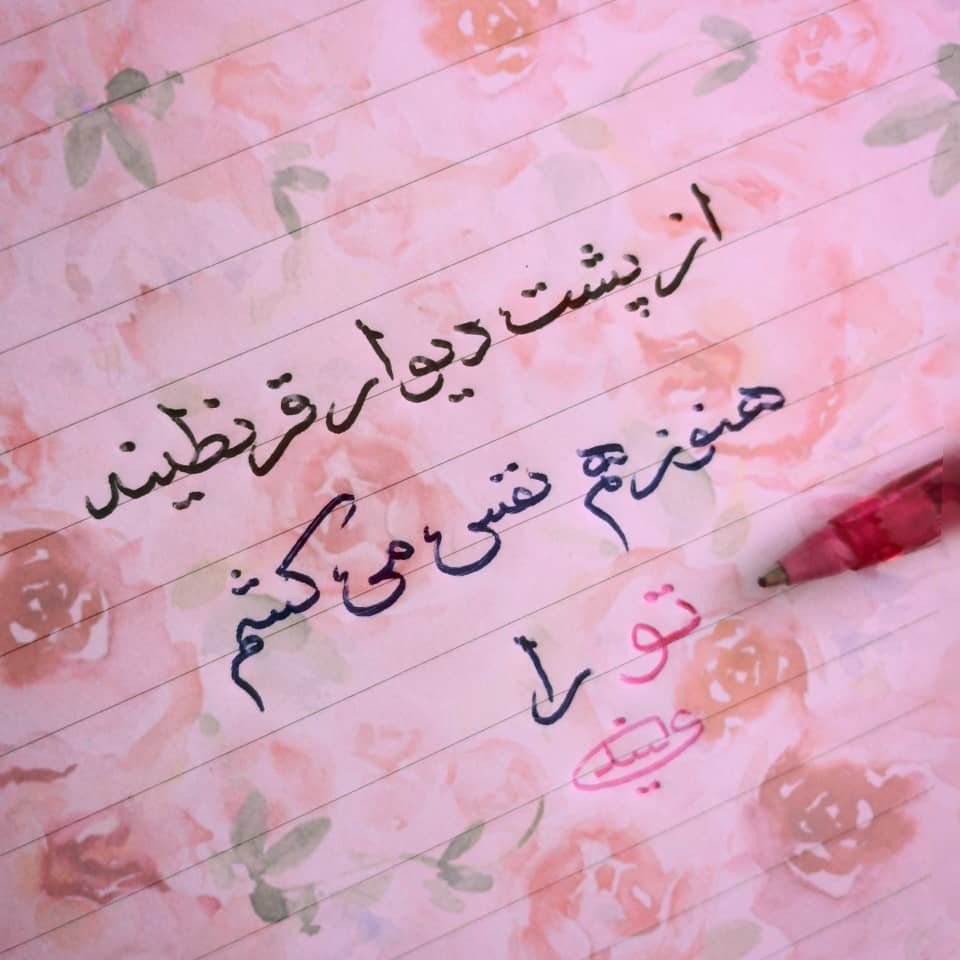 از پشت دیوار قرنطیند
هنوز هم نفس می کشم
تو را